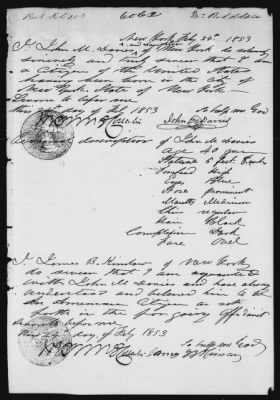 6062
New York Feby 26th 1853
I John M. Davies of New York do solemnly
sincerely and truly swear that I am
a Citizen of the United States
having been born in the City of
New York State of New York
Sworn before me
day of Feby 1853
So help me God
John M Davies
description of John M. Davies
age 40 years
Stature 5 feet
Forehead High
Eyes Blue
Nose prominent
Mouth Medium
Chin regular
Hair Black
Complexion Dark
Face Oval
I James B. of New York
do swear that I am acquainted
with John M. Davies and have always
understood and believed him to be
an American Citizen as set
forth in the foregoing Affidavit
Sworn to before me
day of Feby 1853
So help me God
James B